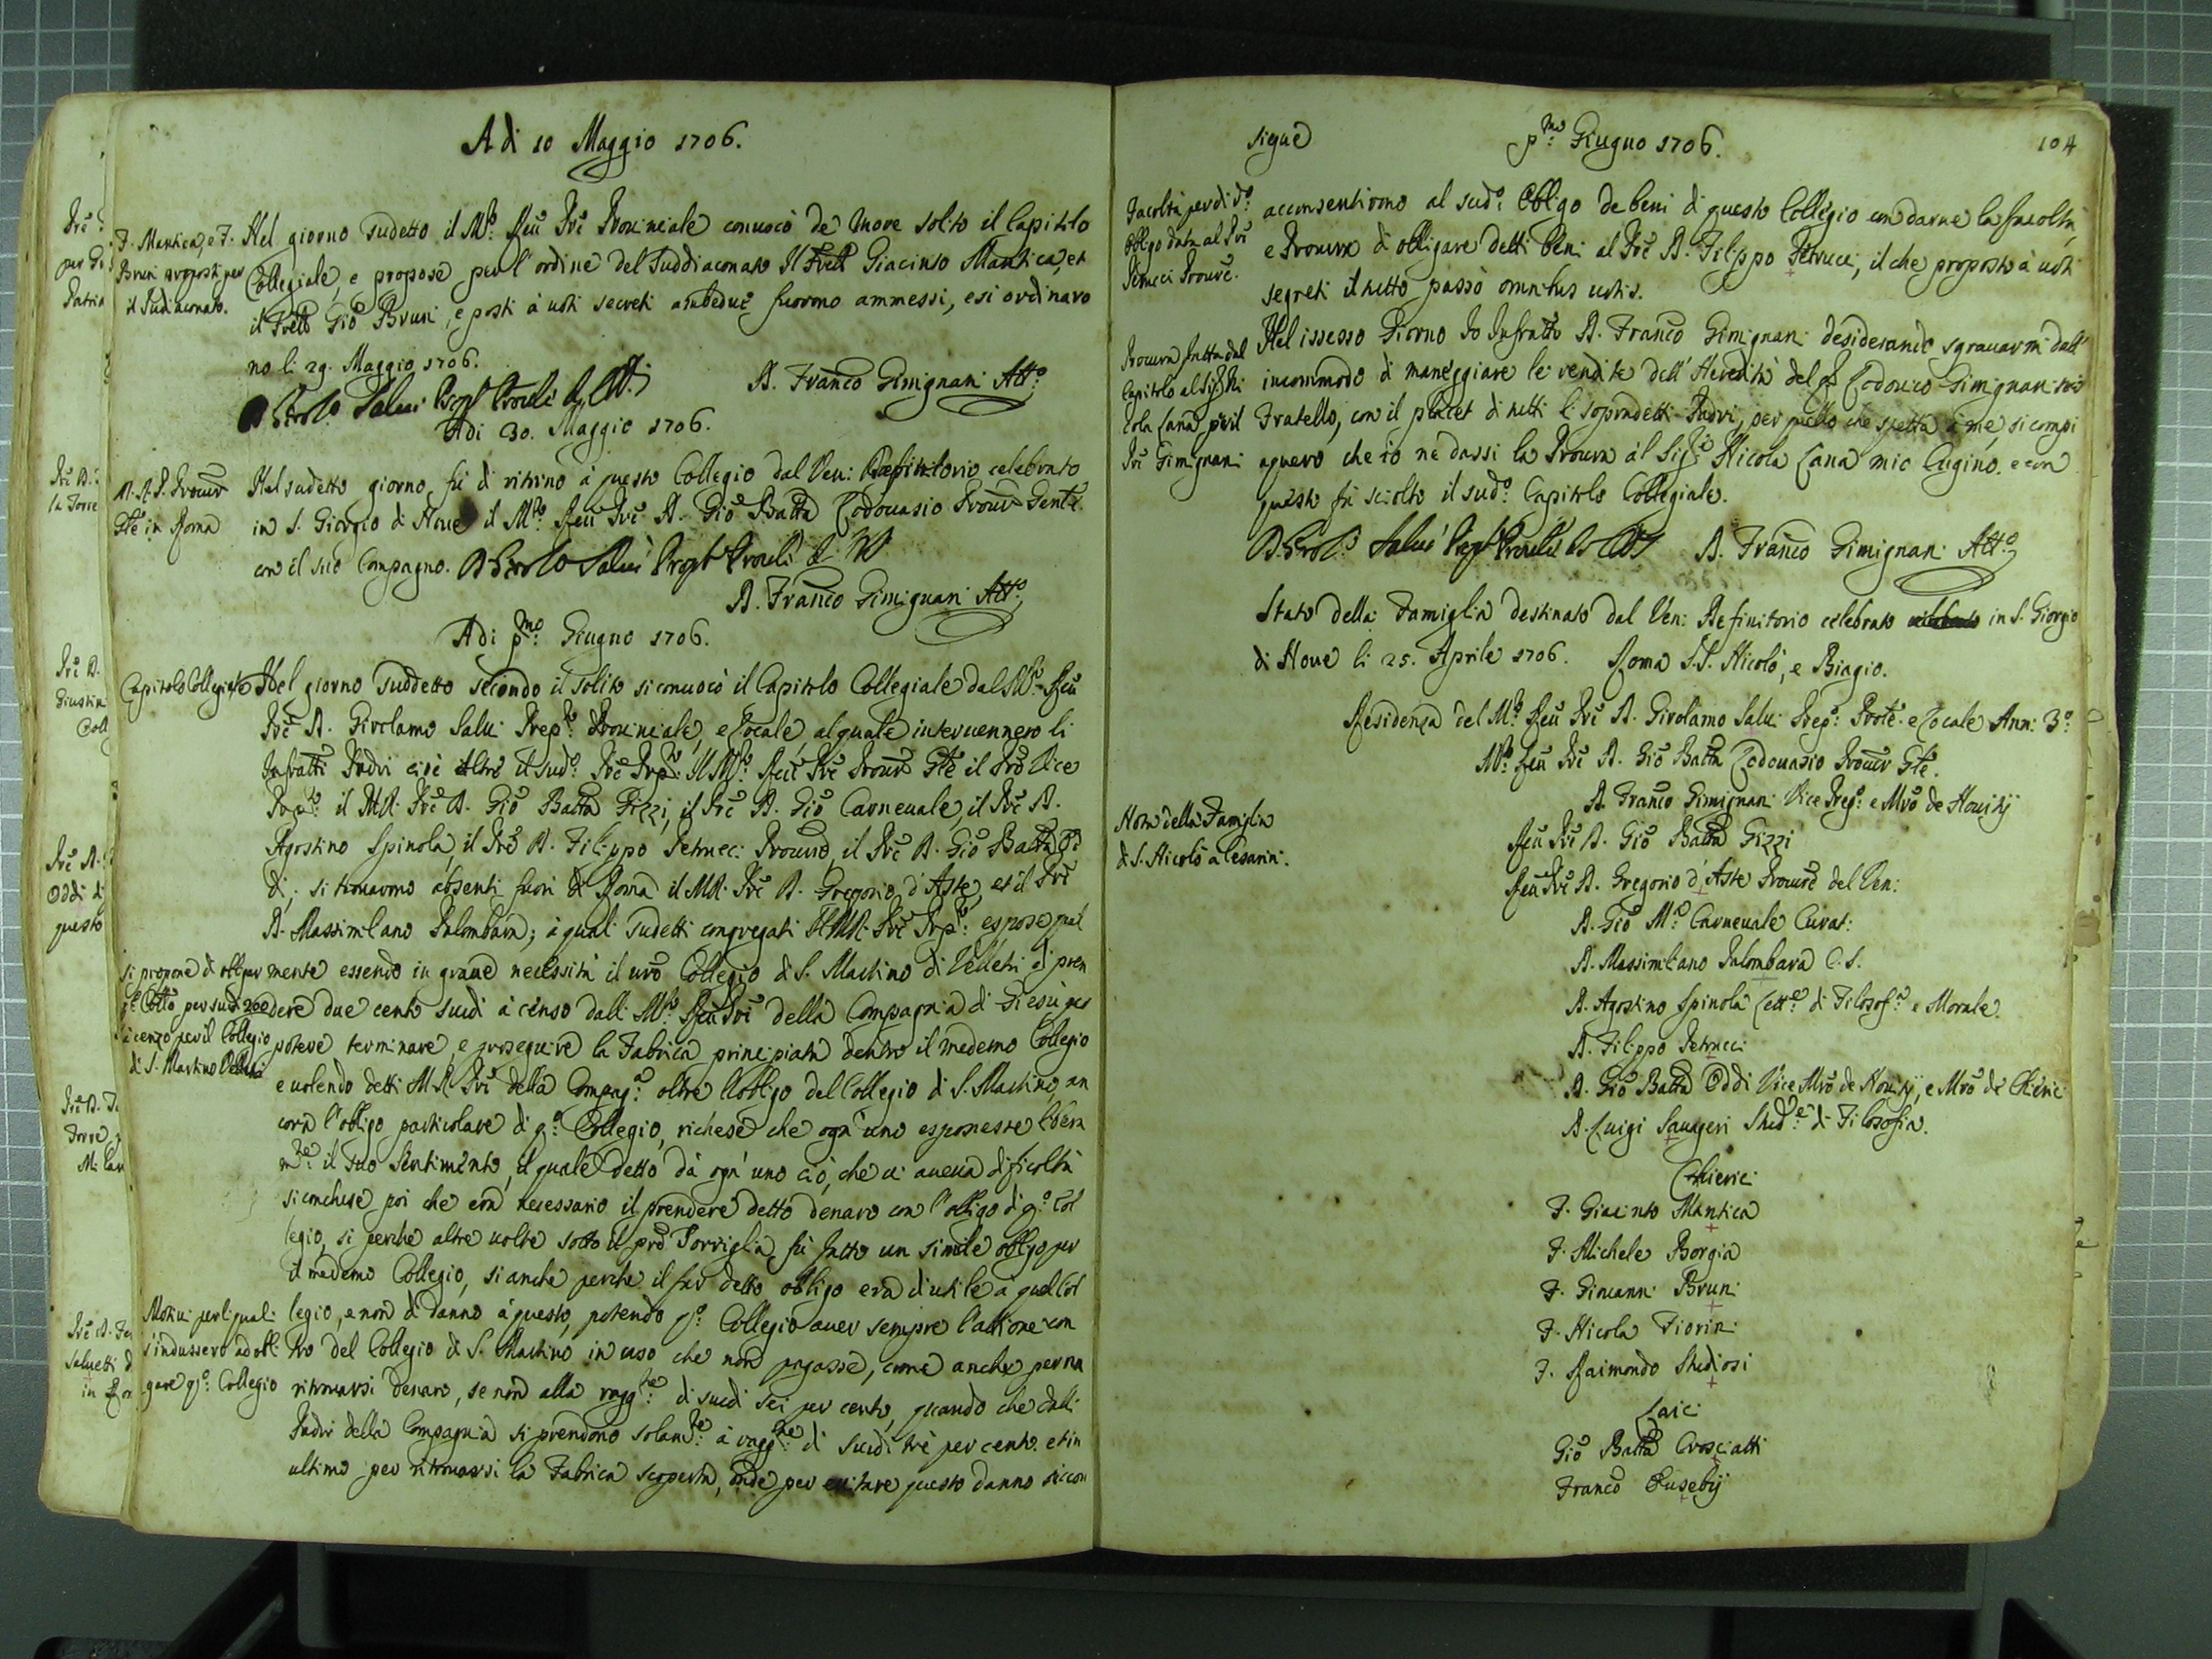 A di 10 Maggio 1706.
F. Mantica, e F.
Bruni proposti per
il Sudiaconato.
Nel giorno sudetto il M.to Reu Pre Prouinciale conuocò de more solito il Capitolo
Collegiale, e propose per l'ordine del Suddiaconato Il Frell Giacinto Mantica, et
il Frello Gio Bruni, e posti à uoti secreti ambedue furono ammessi, e si ordinaro
no li 29. Maggio 1706.
D. Girol.o Salui Prep.to Prouli
D. Franco Gimignani Att.o
Adi 30. Maggio 1706.
M. R. P. Procur
Gle in Roma
Nel sudetto giorno fù di ritorno à questo Collegio dal Ven: Definitorio celebrato
in S. Giorgio di Noue il M.to Reu Pre D. Gio Batta Lodouasio Procur Genle.
con il suo Compagno. D. Girol.o Salui Prep.to Prouli
D. Franco Gimignani Att.o
Adi p.mo Giugno 1706.
Capitolo Collegiale
Nel giorno suddetto secondo il solito si conuocò il Capitolo Collegiale dal M.to Reu
Pre D. Girolamo Salui Prep.to Prouinciale, e Locale, al quale interuennero li
Infratti Padri cioè oltre il sud.o Pre Prep.to: Il M.to Reu Pre Procur Gle il Pre Vice
Prep.to il M.R. Pre D. Gio Batta Gizzi, il Pre D. Gio Carneuale, il Pre D.
Agostino Spinola, il Pre D. Filippo Petrucci Procure, il Pre D. Gio Batta Od
di; si trouauono absenti fuori di Roma il M.R. Pre D. Gregorio d'Aste, et il Pre
D. Massimiliano Palombara; à quali sudetti congregati Il M.R. Pre Prep.to: espose qual
si propone di obligar
q.o Collo per scudi 200
à censo per il Collegio
di S. Martino Velletri
mente essendo in graue necessità il nro Collegio di S. Martino di Velletri di pren
dere due cento scudi à censo dalli M.to Reu Pri della Compagnia di Giesù per
potere terminare, e proseguire la Fabrica principiata dentro il medemo Collegio
e uolendo detti M.R. Pri della Compag.a oltre l'obligo del Collegio di S. Martino, an
cora l'obligo particolare di q.o Collegio, richese che ogn'uno esponesse libera
m.te il suo Sentimento, il quale detto dà ogn'uno ciò, che ci aueua dificoltà
si conchese poi che era necessario il prendere detto denaro con l'obligo di q.o Col
legio, si perche altre uolte sotto il pre Torviglia fù fatto un simile obligo per
il medemo Collegio, si anche perche il far detto obligo era di utile à quel Col
Motiui per li quali
s'indussero ad obli
gare q.o Collegio
legio, e non di danno à questo, potendo q.o Collegio auer sempre l'attione con
tro del Collegio di S. Martino in caso che non pagasse, come anche per non
ritrouarsi denaro, se non alla ragg.ne di scudi sei per cento, quando che dalli
Padri della Compagnia si prendono solam.te à ragg.ne di scudi tre per cento. et in
ultimo per ritrouarsi la Fabrica scoperta, onde per euitare questo danno si con
sigue
p.mo Giugno 1706.
104
Facoltà per di d.o
Obligo data al Pre
Petrucci Procure.
acconsentirono al sud.o Obligo de beni di questo Collegio con darne la facoltà,
e Procura di obligare detti beni al Pre D. Filippo Petrucci, il che proposto à uoti
segreti il tutto passò omnibus uotis.
Procura fatta dal
Capitolo al Sig. Ni
cola Cana per il
Pre Gimignani
Nel istesso Giorno Io Infratto D. Franco Gimignani desiderando sgrauarmi dall'
incommodo di maneggiare le rendite dell'Heredità del Lodouico Gimignani mio
Fratello, con il placet di tutti li sopradetti Padri, per quello che spetta à me, si compi
aquero che io ne dassi la Procura al Sig.re Nicola Cana mio Cugino. e con
questo fù sciolto il sud.o Capitolo Collegiale.
D. Girol.o Salui Prep.to Prouli
D. Franco Gimignani Att.o
Stato della Famiglia destinato dal Ven: Definitorio celebrato in S. Giorgio
di Noue li 25. Aprile 1706. Roma S.S. Nicolò, e Biagio.
Residenza del M.to Reu Pre D. Girolamo Salui Prep.o Prole. e Locale Ann: 3.o
M.to Reu Pre D. Gio Batta Lodouasio Procur Gle.
D. Franco Gimignani Vice Prep.o e Mro de Nouitij
Nota della Famiglia
di S. Nicolò a Cesarini.
Reu Pre D. Gio Batta Gizzi
Reu Pre D. Gregorio d'Aste Procure del Ven:
D. Gio M.a Carneuale Curat:
D. Massimiliano Palombara C.S.
D. Agostino Spinola Lett.e di Filosof.a e Morale.
D. Filippo Petrucci
D. Gio Batta Oddi Vice Mro de Nouitij, e Mro de Chierici
D. Luigi Sauageri Stud.te di Filosofia.
Chierici
F. Giacinto Mantica
F. Michele Borgia
F. Giouanni Bruni
F. Nicola Fiorini
F. Raimondo Studiosi
Laici
Gio Batta Crosciatti
Franco Eusebij